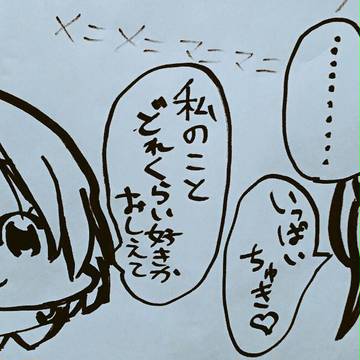 メニメニマニマニ
私のこと
どれくらい好きか
おしえて
………
いっぱい
ちゅき♡